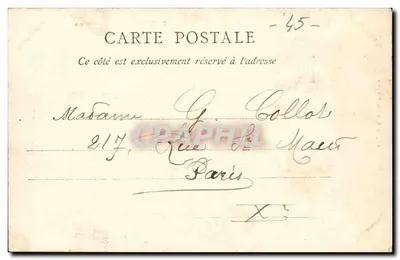 -45-
CARTE POSTALE
Ce côté est exclusivement réservé à l'adresse
Madame G. Collot
217, Rue St Maur
CPAPHIL
Paris
Xe